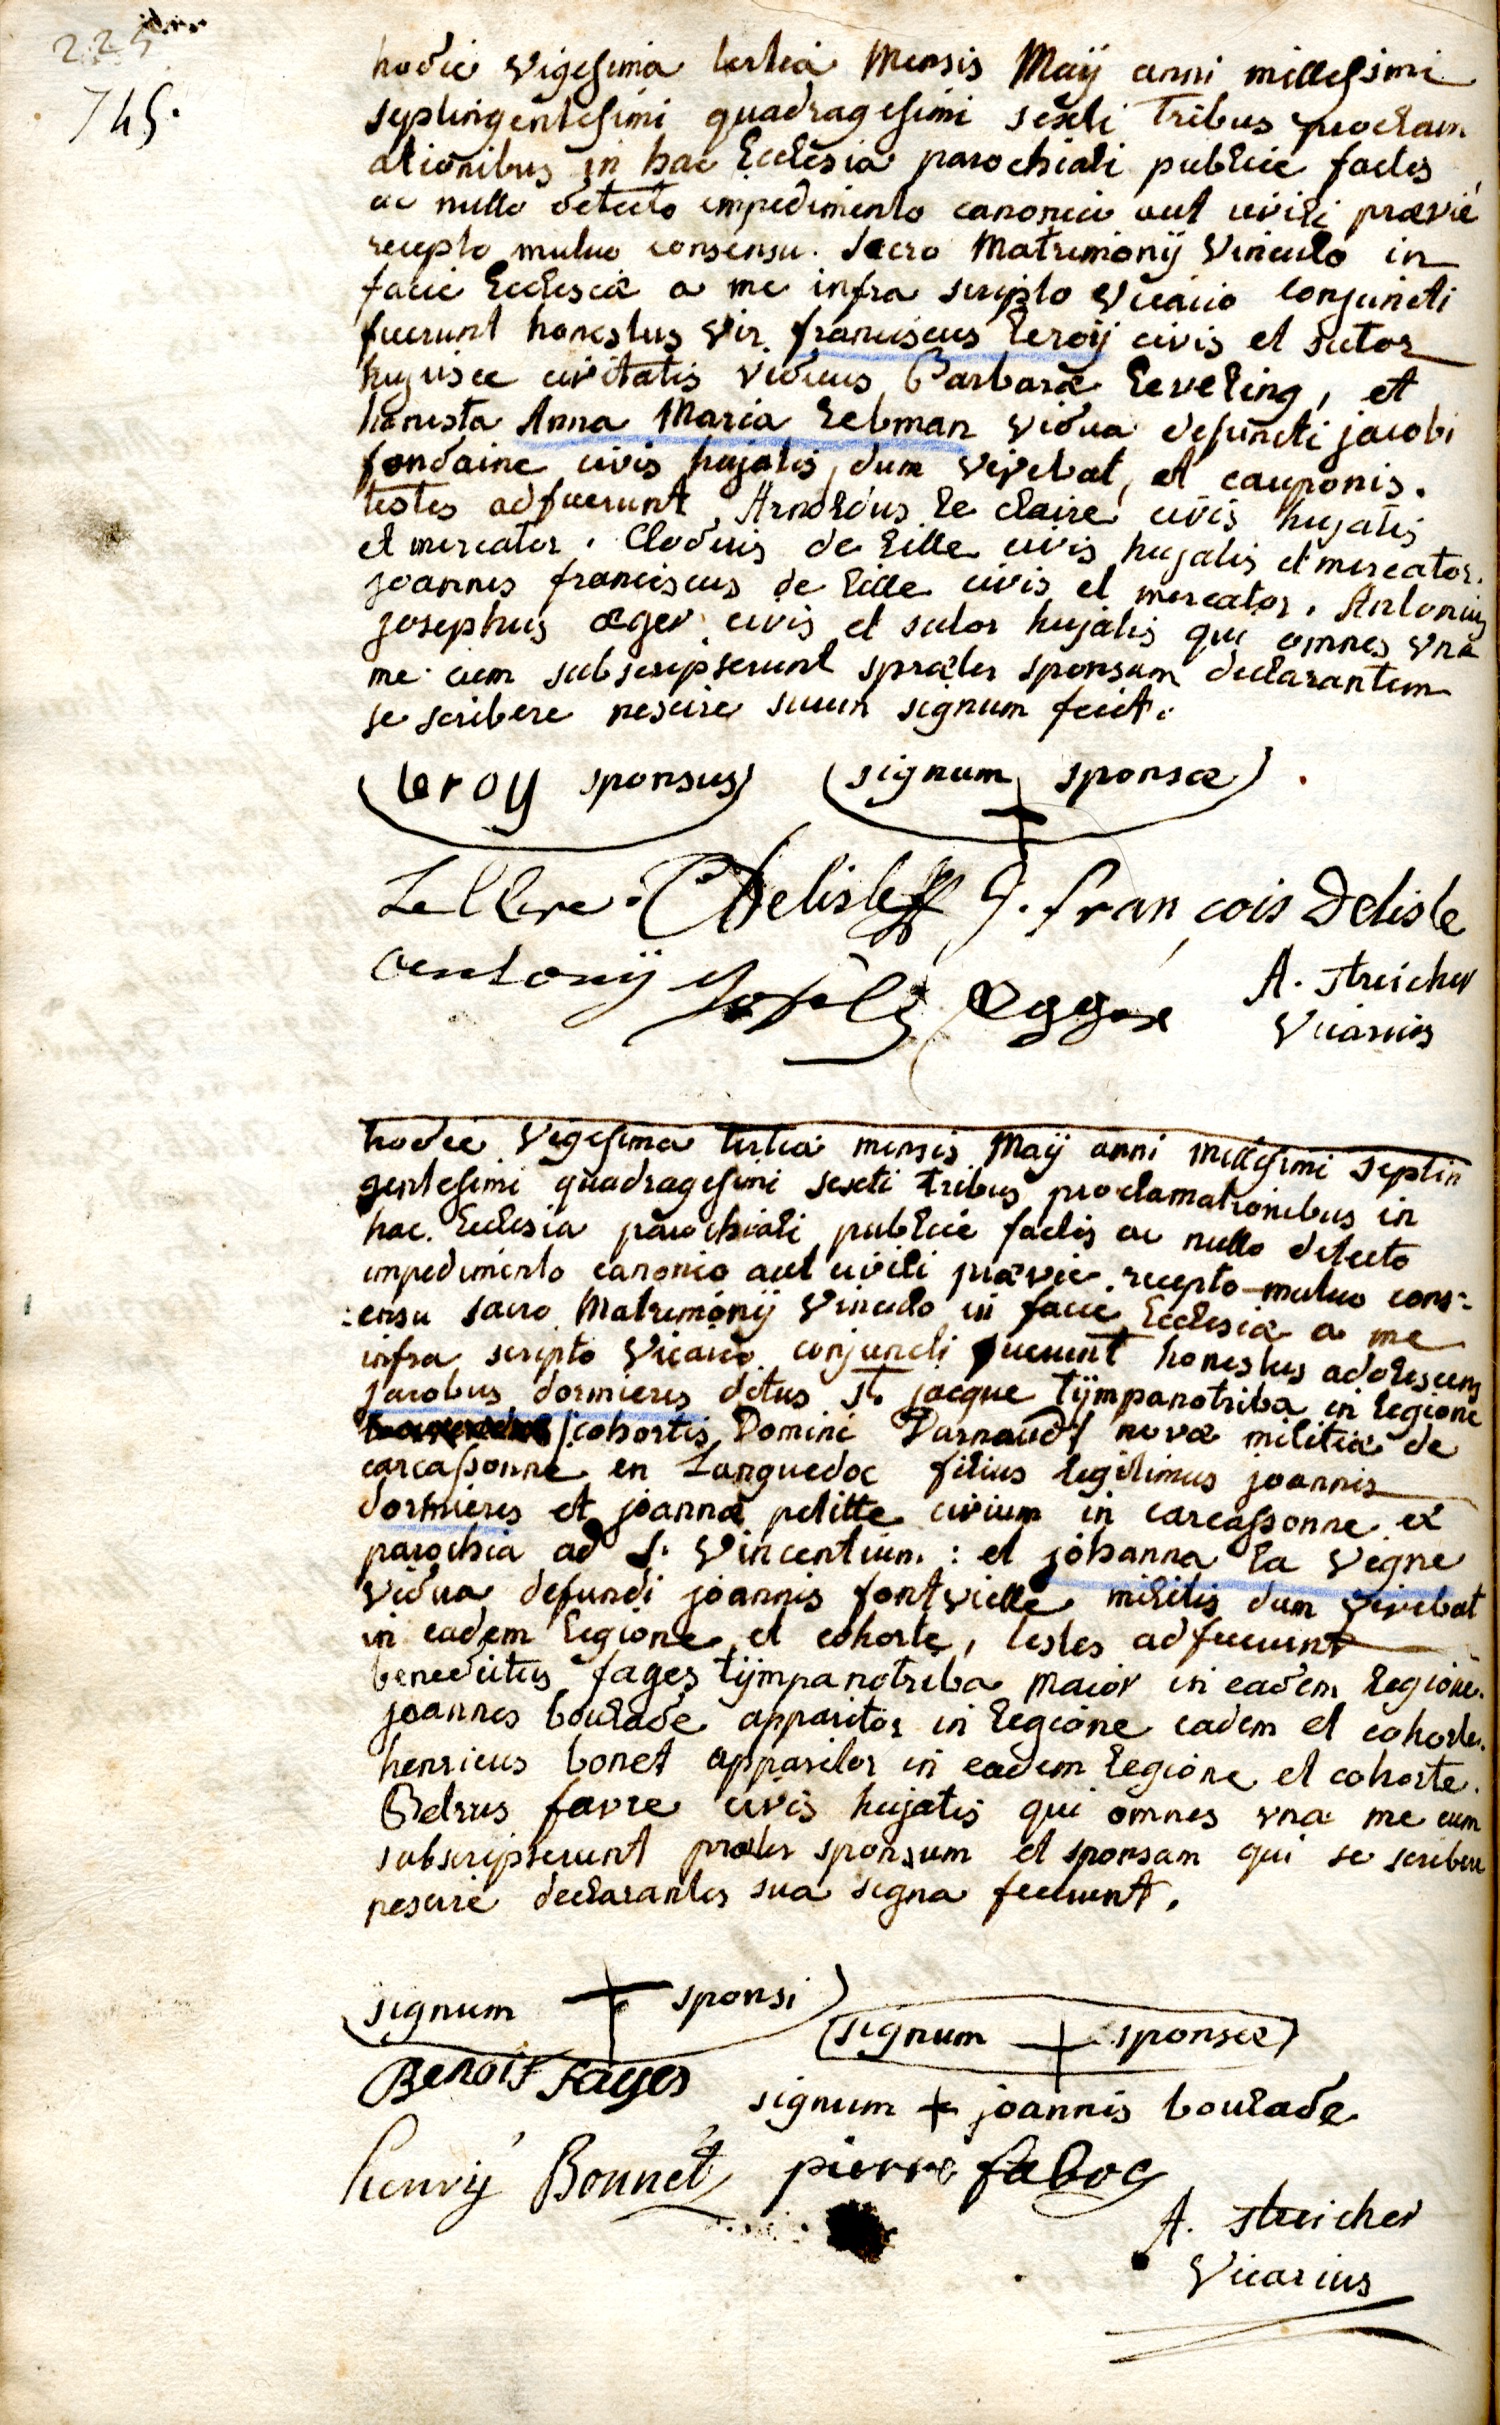 225
745.
hodie vigesima tertia Mensis Maÿ anni millesimi
septingentesimi quadragesimi sexti Tribus proclam
ationibus in hac Ecclesia parochiali publice factis
ac nullo detecto impedimento canonico aut civili prævie
recepto mutuo consensu. sacro Matrimonÿ Vinculo in
facie Ecclesiæ a me infra scripto vicario conjuncti
fuerunt honestus vir franciscus leroÿ civis et sutor
hujusce civitatis viduus Barbaræ leveling, et
honesta Anna Maria lebman vidua defuncti jacobi
fondaine civis hujatis, dum vivebat, et cauponis.
testes adfuerunt, Arnoldus le claire civis hujatis
et mercator. Clodius de lille civis hujatis et mercator.
joannes franciscus de lille civis et mercator. Antonius
josephus æger civis et sutor hujatis qui omnes vna
me cum subscripserunt præter sponsam declarantem
se scribere nescire suum signum fecit.
leroy sponsus signum sponsæ
Le Clere. C Delisle J. françois Delisle
antonÿ Joseph Egger A. Streicher
Vicarius
hodie vigesima tertia mensis Maÿ anni millesimi septin
gentesimi quadragesimi sexti tribus proclamationibus in
hac Ecclesia parochiali publice factis ac nullo detecto
impedimento canonico aut civili prævie recepto mutuo cons:
:ensu sacro Matrimonÿ Vinculo in facie Ecclesiæ a me
infra scripto Vicario conjuncti fuerunt honestus adolescens
jacobus dormieres dctus St. jacque tÿmpanotriba in legione
cohortis Domini Darnaud novæ militiæ de
carcassonne en Languedoc filius legitimus joannis
dormieres et joannæ petitte civium in carcassonne ex
parochia ad S. Vincentium : et johanna la vigne
vidua defuncti joannis fontvielle militis dum vivebat
in eadem legione et cohorte, testes adfuerunt
benedictus fages tÿmpanotriba maior in eadem legione.
joannes boulade apparitor in legione eadem et cohorte.
henricus bonet apparitor in eadem legione et cohorte.
Petrus favre civis hujatis qui omnes vna me cum
subscripserunt præter sponsum et sponsam qui se scribere
nescire declarantes sua signa fecerunt.
signum sponsi
signum sponsæ
Benoit Fages
signum + joannis boulade
henrÿ Bonnet pierre faboc
A. Streicher
Vicarius